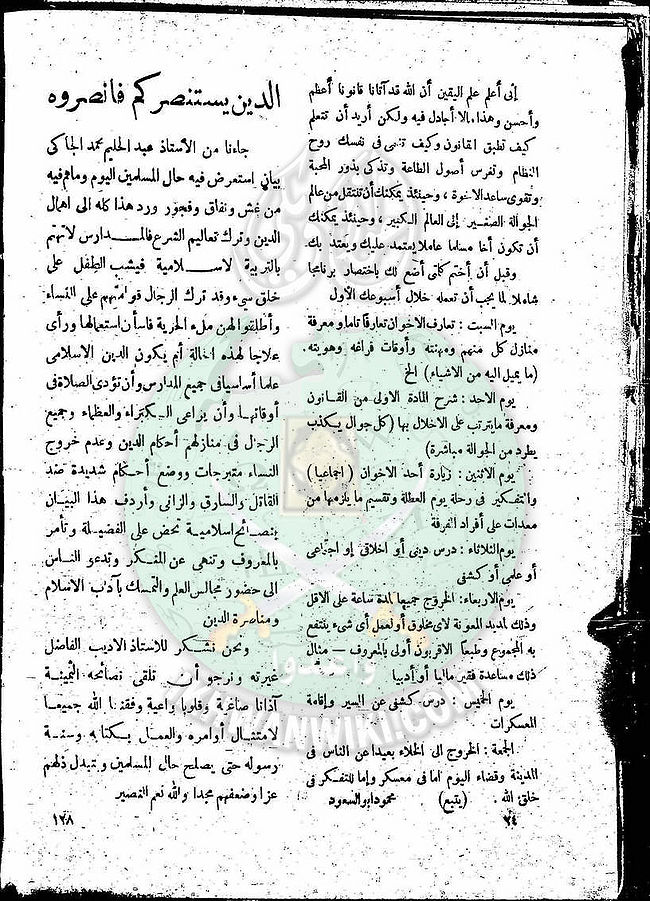 إنى أعلم علم اليقين أن الله قد آتانا قانونا أعظم
وأحسن وهذا مالا أجادل فيه ولكن أريد أن تتعلم
كيف تطبق القانون وكيف تنمى فى نفسك روح
النظام وتغرس أصول الطاعة وتذكى بذور المحبة
وتقوى ساعد الاخوة ، وحينئذ يمكنك أن تنتقل من عالم
الجوالة الصغير إلى العالم الكبير ، وحينئذ يمكنك
أن تكون أخا مسلما عاملا يعتمد عليك ويعتد بك.
وقبل أن أختم كلمتى أضع لك باختصار برنامجا
شاملا لما يجب أن تعمله خلال أسبوعك الأول
يوم السبت : تعارف الاخوان تعارفا تاما ومعرفة
منازل كل منهم ومهنته وأوقات فراغه وهويته .
(ما يميل اليه من الاشياء) الخ
يوم الاحد : شرح المادة الاولى من القانون
ومعرفة ما يترتب على الاخلال بها (كل جوال يكذب
يطرد من الجوالة مباشرة)
يوم الاثنين : زيارة أحد الاخوان (اجماعيا)
والتفكير فى رحلة يوم العطلة وتقسيم ما يلزمها من
معدات على أفراد الفرقة
يوم الثلاثاء : درس دينى أو اخلاقى او اجتماعى
أو علمى أو كشفى
يوم الاربعاء: الخروج جميعا لمدة ساعة على الاقل
وذلك لمد يد المعونة لاى مخلوق أو لعمل أى شىء ينتفع
به المجموع وطبعا الاقربون أولى بالمعروف — مثال
ذلك مساعدة فقير ماليا أو أدبيا
يوم الخميس : درس كشفى عن السير وإقامة
المعسكرات
الجمعة : الخروج الى الخلاء بعيدا عن الناس فى
المدينة وقضاء اليوم اما فى معسكر وإما للتفكر فى
خلق الله . (يتبع) محمود ابو السعود
٢٤
الدين يستنصركم فانصروه
جاءنا من الأستاذ عبد الحليم محمد الجاكى
بيانى استعرض فيه حال المسلمين اليوم وماهم فيه
من غش ونفاق وفجور ورد هذا كله الى اهمال
الدين وترك تعاليم الشرع فالمدارس لا تهتم
بالتربية لاسلامية فيشب الطفل على
خلق سىء وقد ترك الرجال قوامتهم على النساء
وأطلقوا لهن ملء الحرية فاسأن استعمالها ورأى
علاجا لهذه الحالة أن يكون الدين الاسلامى
علما أساسيا فى جميع المدارس وأن تؤدى الصلاة فى
أوقاتها وأن يراعى الكبراء والعظماء وجميع
الرجال فى منازلهم أحكام الدين وعدم خروج
النساء متبرجات ووضع أحكام شديدة ضد
القاتل والسارق والزانى وأردف هذا البيان
بنصائح اسلامية تحض على الفضيلة وتأمر
بالمعروف وتنهى عن المنكر وتدعو الناس
الى حضور مجالس العلم والتمسك بآداب الاسلام
ومناصرة الدين
ونحن نشكر للاستاذ الاديب الفاضل
غيرته ونرجو أن تلقى نصائحه الثمينة
آذانا صاغية وقلوبا واعية وفقنا الله جميعا
لامتثال أوامره والعمل بكتابه وسنة
رسوله حتى يصلح حال المسلمين ويتبدل ذلهم
عزا وضعفهم مجدا والله نعم النصير
١٢٨
وأعدوا
IKHWANWIKI.COM